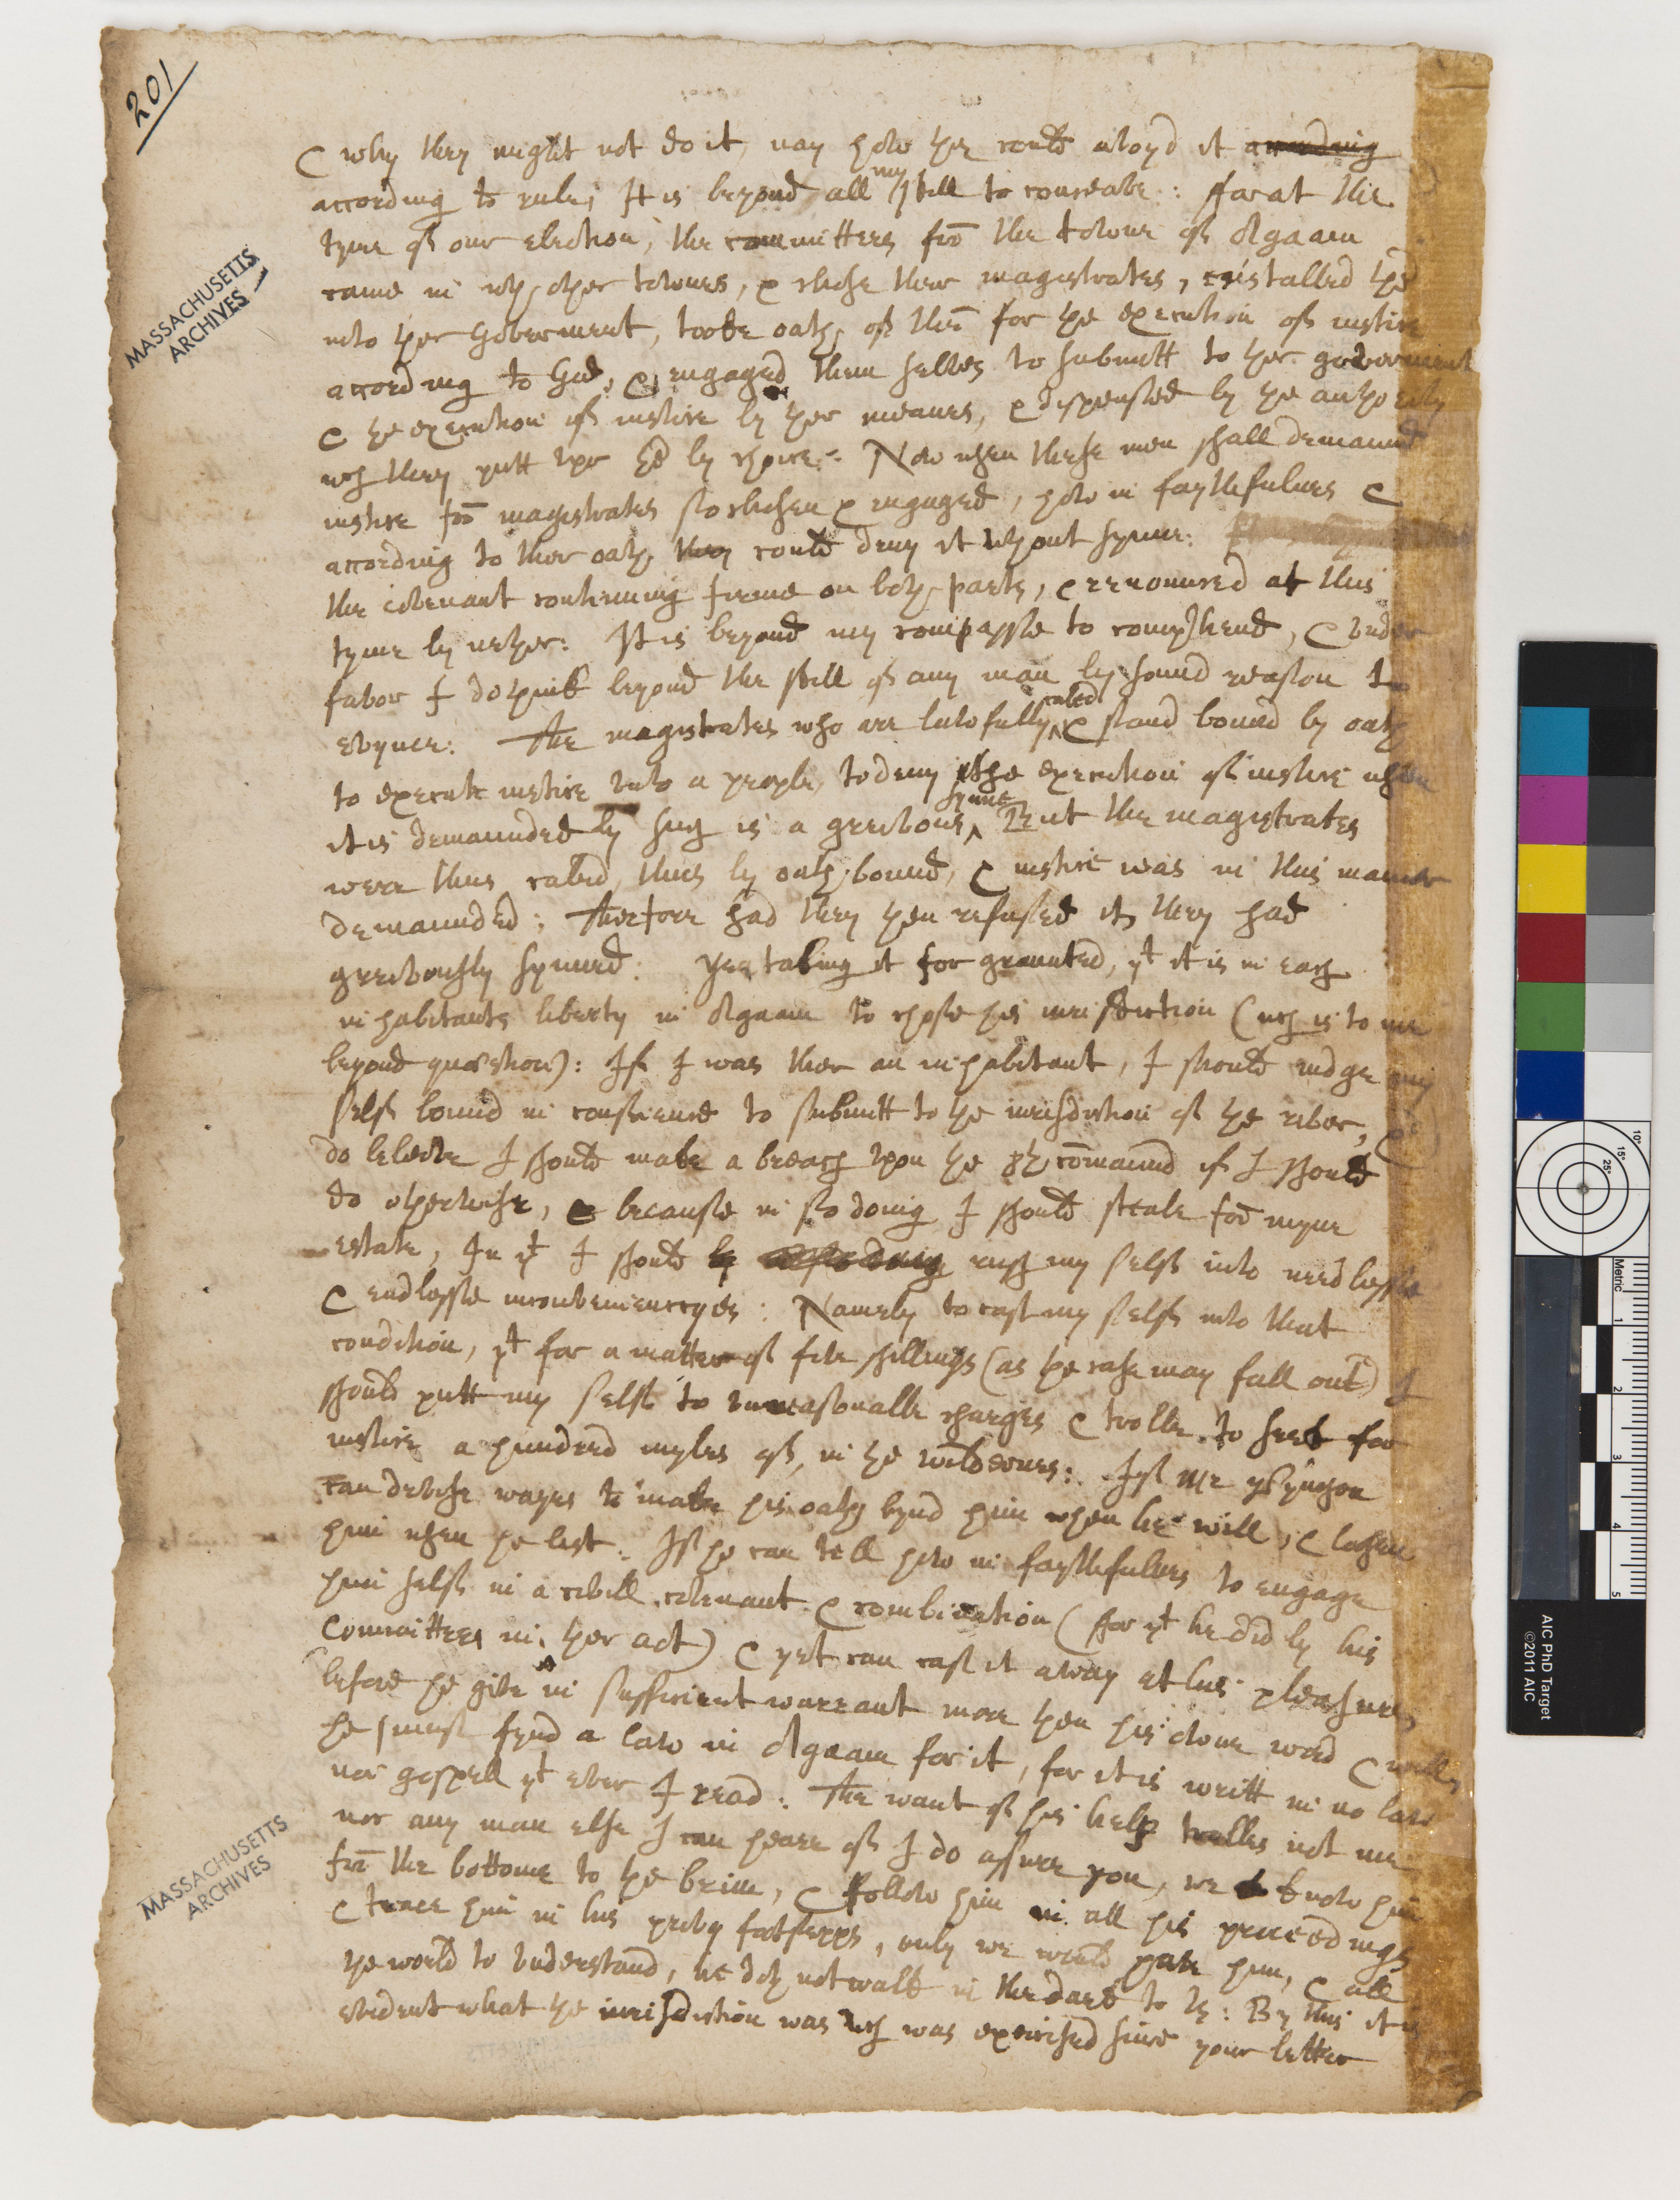 201
MASSACHUSETTS
ARCHIVES
& why they might not do it, nay how they could avoyd it according
according to rule, It is beyond all my skill to conceave: ffor at the
tyme of our election, the committees frō the towne of Agaam
came in wth other townes, & chose their magistrates, installed thē
into their Goverment, tooke oath of thē for the execution of iustice
according to God, & engaged them selves to submitt to their goverment
& the execution of iustice by their meanes, & dispensed by the authority
wch they putt upō thē by choice: Now when these men shall demaund
iustice frō magistrates so chosen & ingaged, how in faythfulnes &
according to their oath they could deny it wthout synne:
the covenant continuing firme on both parts, & renounced at this
tyme by nether: It is beyond my compasse to comp̄hend, & under
favor I do think beyond the skill of any man by sound reason to
evynce: The magistrates who are lawfully caled & stand bound by oath
to execute iustice unto a people, to deny the execution of iustice when
it is demaunded by such is a greevous synne, But the magistrates
were thus caled, thus by oath bound, & iustice was in this manner
demaunded; Therfore had they then refused it, they had
greevously synned: Yea, taking it for graunted, yt it is in each
inhabitants liberty in Agaam to chose his iurisdiction (wch is to me
beyond quæstion): If I was ther an inhabitant, I should iudge my
self bound in conscience to submitt to the iurisdiction of the river, &
do beleeve I should make a breach upon the 8th cōmaund if I should
do otherwise, & because in so doing I should steale frō myne
estate, In yt I should by so doing rush my self into needlesse
& endlesse inconveniencyes: Namely to cast my self into that
condition, yt for a matter of five shillings (as the case may fall out) I
should putt my self to unreasonable charges & troble to seek for
iustice a hundred myles of, in the wildernes: If Mr pynchon
can devise wayes to make his oath bynd him when he will, & losen
him when he list: If he can tell how in faythfulnes to engage
him self in a civill covenant & combination (ffor yt he did by his
Committees in their act) & yet can cast it away at his pleasure,
before he give in sufficient warrant more then his owne word & will,
he must fynd a law in Agaam for it, for it is writt in no law
nor gospell yt ever I read: The want of his help trobles not me
nor any man else I can heare of I do assure you, we know him
frō the bottome to the brim, & follow him in all his proceedings
& trace him in his privy footstepps, only we would have him, & all
the world to understand, he doth not walk in the dark to us: By this it is
evident what the iurisdiction was wch was exercised since your letter
MASSACHUSETTS
ARCHIVES
10°
15°
25°
Metric
1
2
3
4
5
AIC PhD Target
©2011 AIC